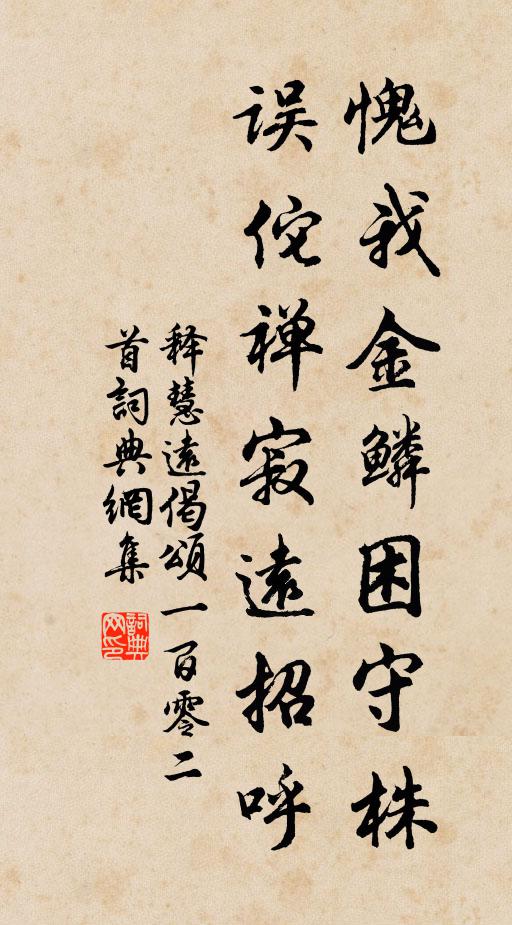 愧我金鳞困守株
误侘禅寂遠招呼
释慧遠偈頌一百零二
首詞典網集
詞典网印